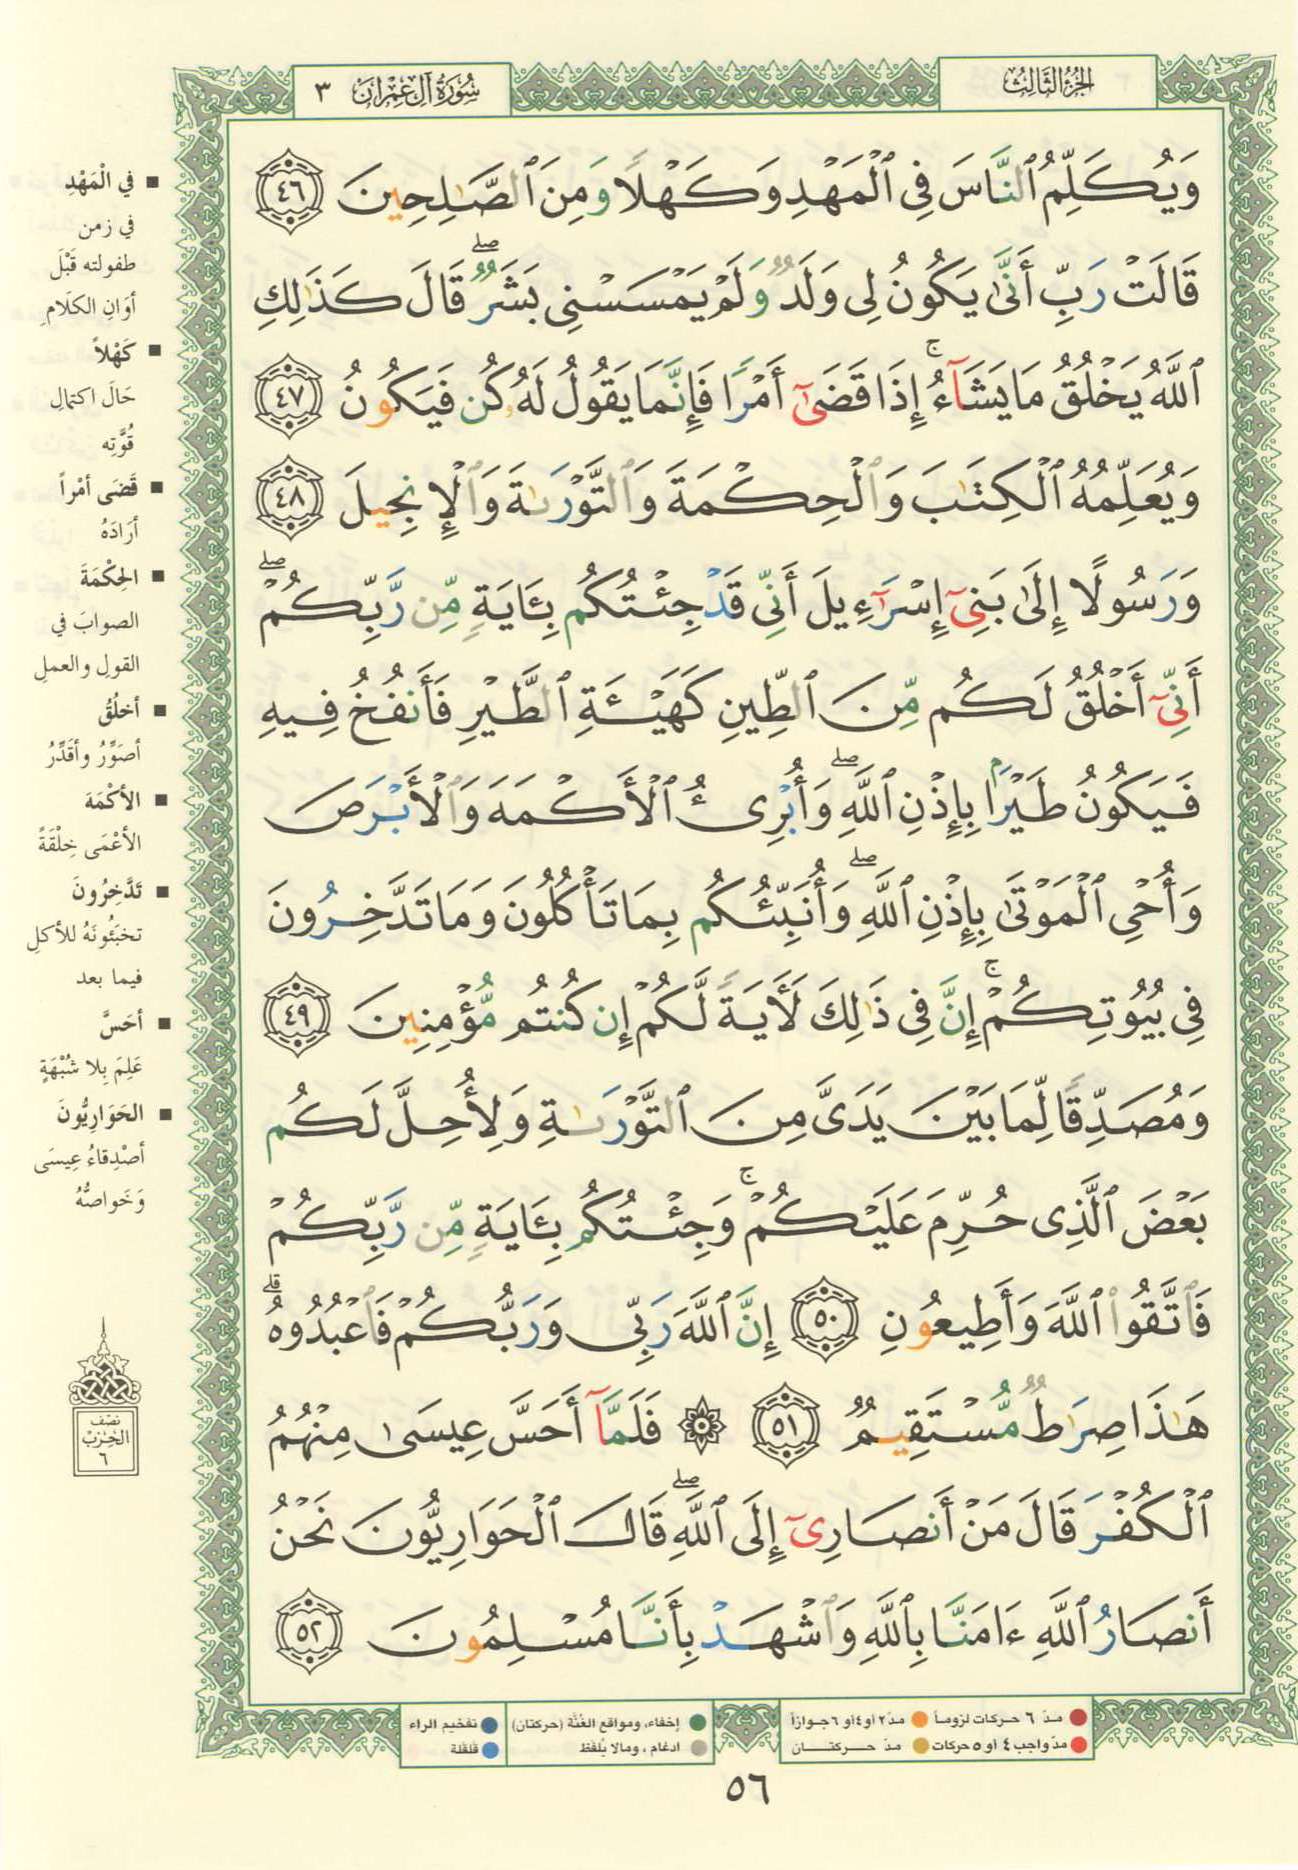 الجزء الثالث
سورة آل عمران ٣
وَيُكَلِّمُ ٱلنَّاسَ فِى ٱلْمَهْدِ وَكَهْلًا وَمِنَ ٱلصَّٰلِحِينَ ٤٦
قَالَتْ رَبِّ أَنَّىٰ يَكُونُ لِى وَلَدٌ وَلَمْ يَمْسَسْنِى بَشَرٌ ۖ قَالَ كَذَٰلِكِ
ٱللَّهُ يَخْلُقُ مَا يَشَآءُ ۚ إِذَا قَضَىٰٓ أَمْرًا فَإِنَّمَا يَقُولُ لَهُۥ كُن فَيَكُونُ ٤٧
وَيُعَلِّمُهُ ٱلْكِتَٰبَ وَٱلْحِكْمَةَ وَٱلتَّوْرَىٰةَ وَٱلْإِنجِيلَ ٤٨
وَرَسُولًا إِلَىٰ بَنِىٓ إِسْرَٰٓءِيلَ أَنِّى قَدْ جِئْتُكُم بِـَٔايَةٍ مِّن رَّبِّكُمْ ۖ
أَنِّىٓ أَخْلُقُ لَكُم مِّنَ ٱلطِّينِ كَهَيْـَٔةِ ٱلطَّيْرِ فَأَنفُخُ فِيهِ
فَيَكُونُ طَيْرًۢا بِإِذْنِ ٱللَّهِ ۖ وَأُبْرِئُ ٱلْأَكْمَهَ وَٱلْأَبْرَصَ
وَأُحْىِ ٱلْمَوْتَىٰ بِإِذْنِ ٱللَّهِ ۖ وَأُنَبِّئُكُم بِمَا تَأْكُلُونَ وَمَا تَدَّخِرُونَ
فِى بُيُوتِكُمْ ۚ إِنَّ فِى ذَٰلِكَ لَـَٔايَةً لَّكُمْ إِن كُنتُم مُّؤْمِنِينَ ٤٩
وَمُصَدِّقًا لِّمَا بَيْنَ يَدَىَّ مِنَ ٱلتَّوْرَىٰةِ وَلِأُحِلَّ لَكُم
بَعْضَ ٱلَّذِى حُرِّمَ عَلَيْكُمْ ۚ وَجِئْتُكُم بِـَٔايَةٍ مِّن رَّبِّكُمْ
فَٱتَّقُوا۟ ٱللَّهَ وَأَطِيعُونِ ٥٠ إِنَّ ٱللَّهَ رَبِّى وَرَبُّكُمْ فَٱعْبُدُوهُ ۗ
هَٰذَا صِرَٰطٌ مُّسْتَقِيمٌ ٥١ ۞ فَلَمَّآ أَحَسَّ عِيسَىٰ مِنْهُمُ
ٱلْكُفْرَ قَالَ مَنْ أَنصَارِىٓ إِلَى ٱللَّهِ ۖ قَالَ ٱلْحَوَارِيُّونَ نَحْنُ
أَنصَارُ ٱللَّهِ ءَامَنَّا بِٱللَّهِ وَٱشْهَدْ بِأَنَّا مُسْلِمُونَ ٥٢
■ في الْمَهْدِ
في زمن
طفولته قَبْلَ
أوَانِ الكلامِ
■ كَهْلاً
حَالَ اكتمالِ
قُوَّتِه
■ قَضَى أمْراً
أرَادَهُ
■ الحِكْمَةَ
الصوابَ في
القولِ والعملِ
■ أخلُقُ
أصَوِّرُ وأقَدِّرُ
■ الأكْمَهَ
الأعْمَى خِلْقَةً
■ تَدَّخِرُونَ
تخبَئُونَهُ للأكلِ
فيما بعد
■ أحَسَّ
عَلِمَ بِلا شُبْهَةٍ
■ الحَوَارِيُّونَ
أصْدِقاءُ عِيسَى
وَخَواصُّهُ
نصف
الحزب
٦
مدّ ٦ حركات لزوماً ● مدّ ٢ أو ٤ أو ٦ جوازاً
مدّ واجب ٤ أو ٥ حركات ● مدّ حركتان
إخفاء، ومواقع الغُنَّة (حركتان) ● تفخيم الراء
ادغام، ومالا يُلفَظ ● قلقلة
٥٦